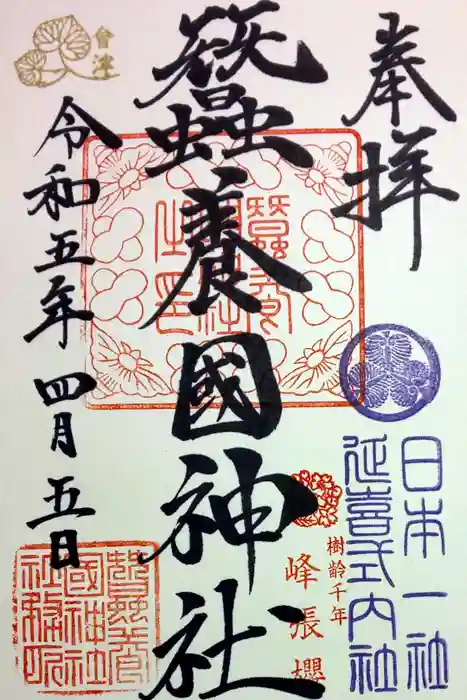 奉拝
日本一社
延喜式内社
樹齢千年
峰張櫻
蠶養國神社
會津
令和五年四月五日
蠶養國神社務所